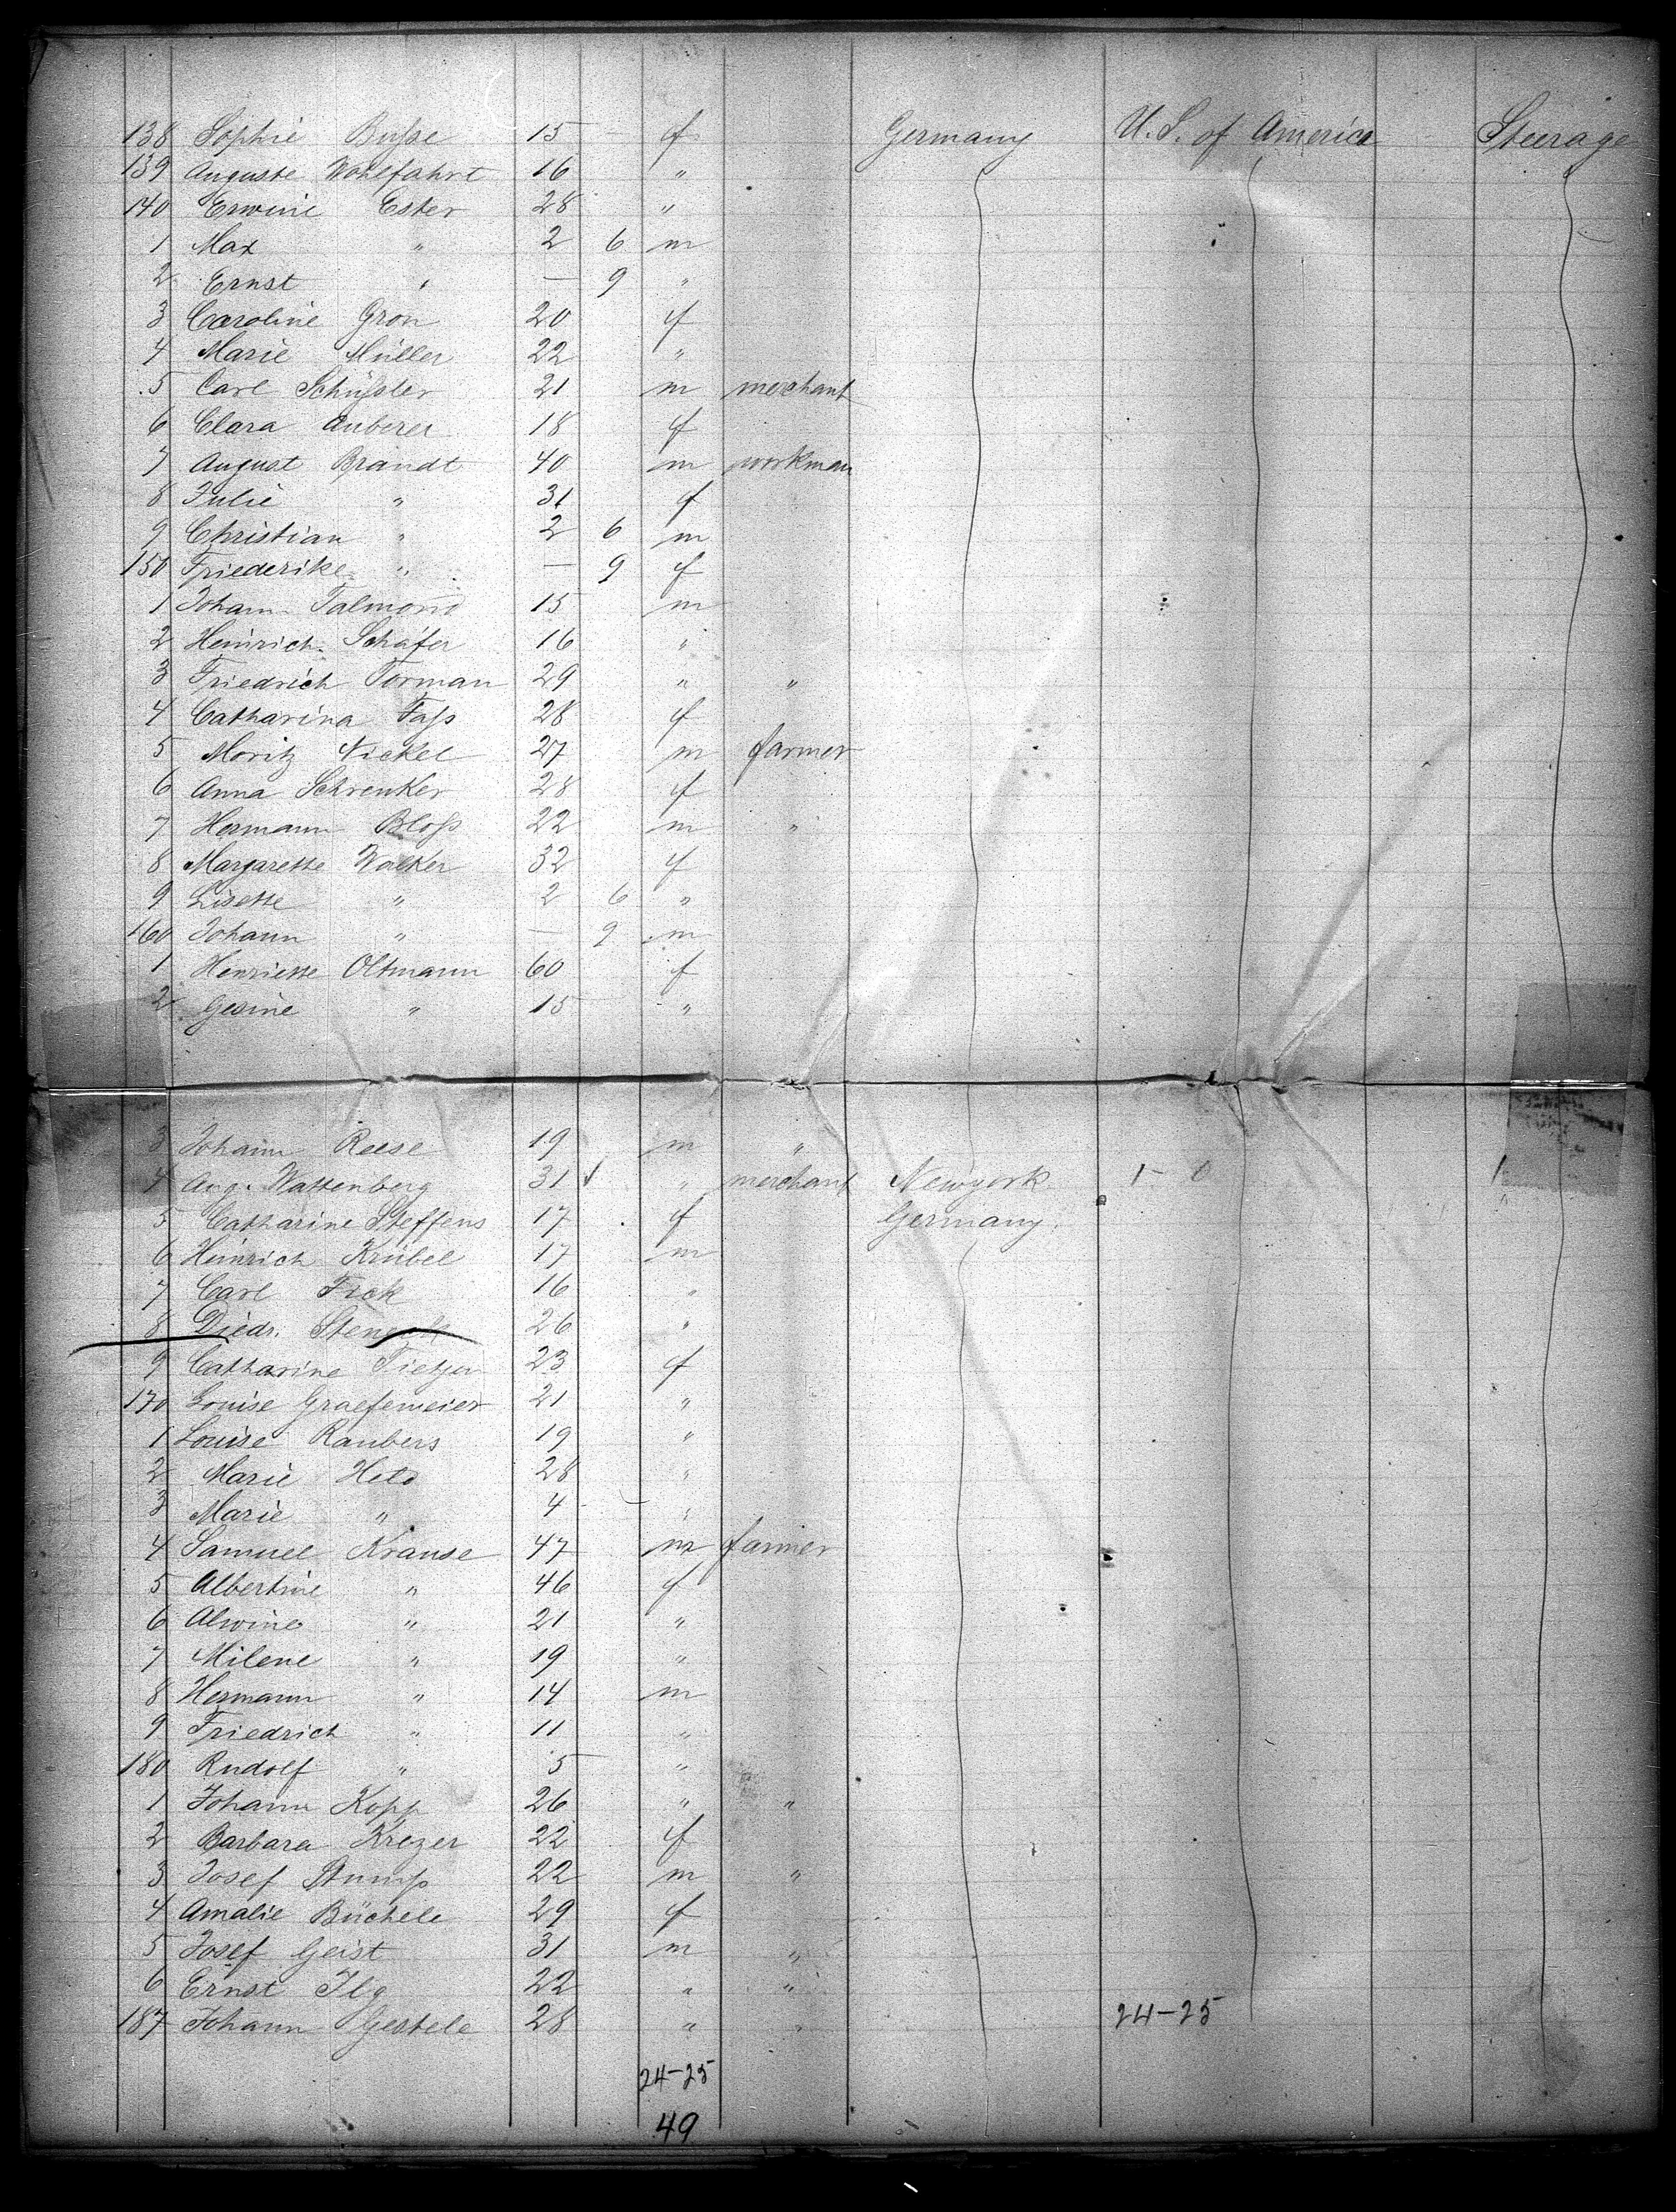 138 Sophie Buſse 15 – f Germany U.S. of America Steerage
139 Auguste Wohlfahrt 16 "
140 Erwine Ester 28 "
1 Max " 2 6 m
2 Ernst " — 9 "
3 Caroline Gron 20 f
4 Marie Müller 22 "
5 Carl Schüſsler 21 m merchant
6 Clara Auberer 18 f
7 August Brandt 40 m workman
8 Julie " 31 f
9 Christian " 2 6 m
150 Friederike " — 9 f
1 Johann Talmond 15 m
2 Heinrich Schäfer 16 "
3 Friedrich Torman 29 " "
4 Catharina Faſs 28 f
5 Moritz Nickel 27 m farmer
6 Anna Schrenker 28 f
7 Hermann Bloſs 22 m "
8 Margarethe Walker 32 f
9 Lisette " 2 6 "
160 Johann " — 9 m
1 Henriette Oltmann 60 f
2 Gesine " 15 "
3 Johann Reese 19 m "
4 Aug. Wattenberg 31 " merchant Newyork 1 - 0 1
5 Catharine Steffens 17 f Germany
6 Heinrich Krübel 17 m
7 Carl Fick 16 "
8 Diedr. 26 "
9 Catharine Tietjen 23 f
170 Louise Graefemeier 21 "
1 Louise Raubers 19 "
2 Marie 28 "
3 Marie " 4 – "
4 Samuel Krause 47 m farmer
5 Albertine " 46 f
6 Alwine " 21 "
7 Milene " 19 "
8 Hermann " 14 m
9 Friedrich " 11 "
180 Rudolf " 5 "
1 Johann Kopp 26 " "
2 Barbara Krezer 22 f
3 Josef 22 m "
4 Amalie Büchele 29 f
5 Josef Geist 31 m "
6 Ernst Ilg 22 " "
187 Johann Gestele 28 " " 24-25
24-25
49